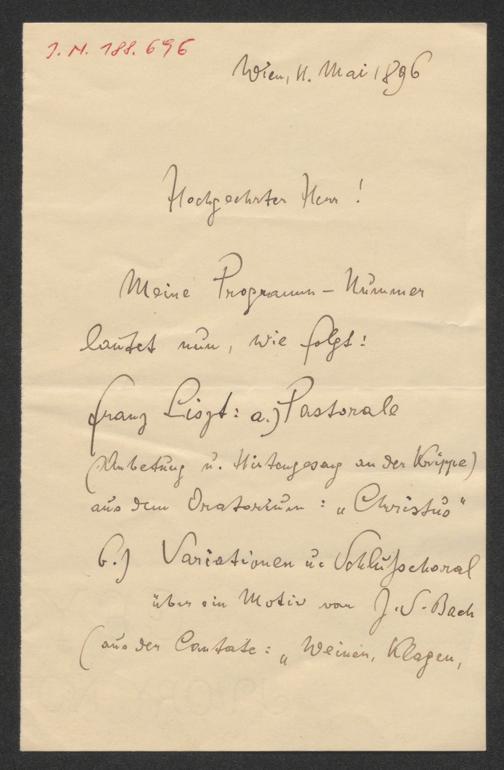 J. N. 188.696
Wien, 11. Mai 1896
Hochgeehrter Herr!
Meine Programm-Nummer
lautet nun, wie folgt:
Franz Liszt: a.) Pastorale
(Anbetung u. Hirtengesang an der Krippe)
aus dem Oratorium: „Christus"
b.) Variationen u. Schlußchoral
über ein Motiv von J. S. Bach
(aus der Cantate: „Weinen, Klagen,